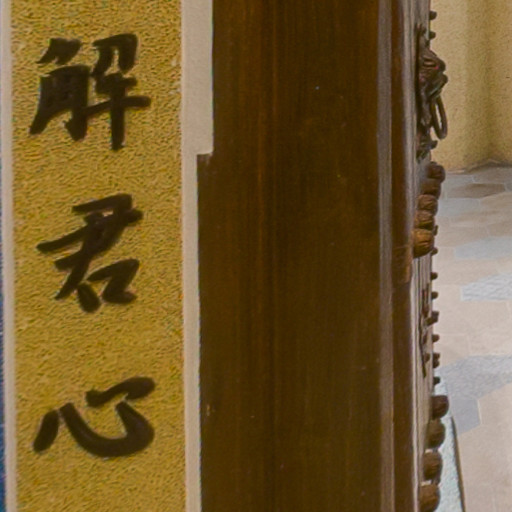 解君心